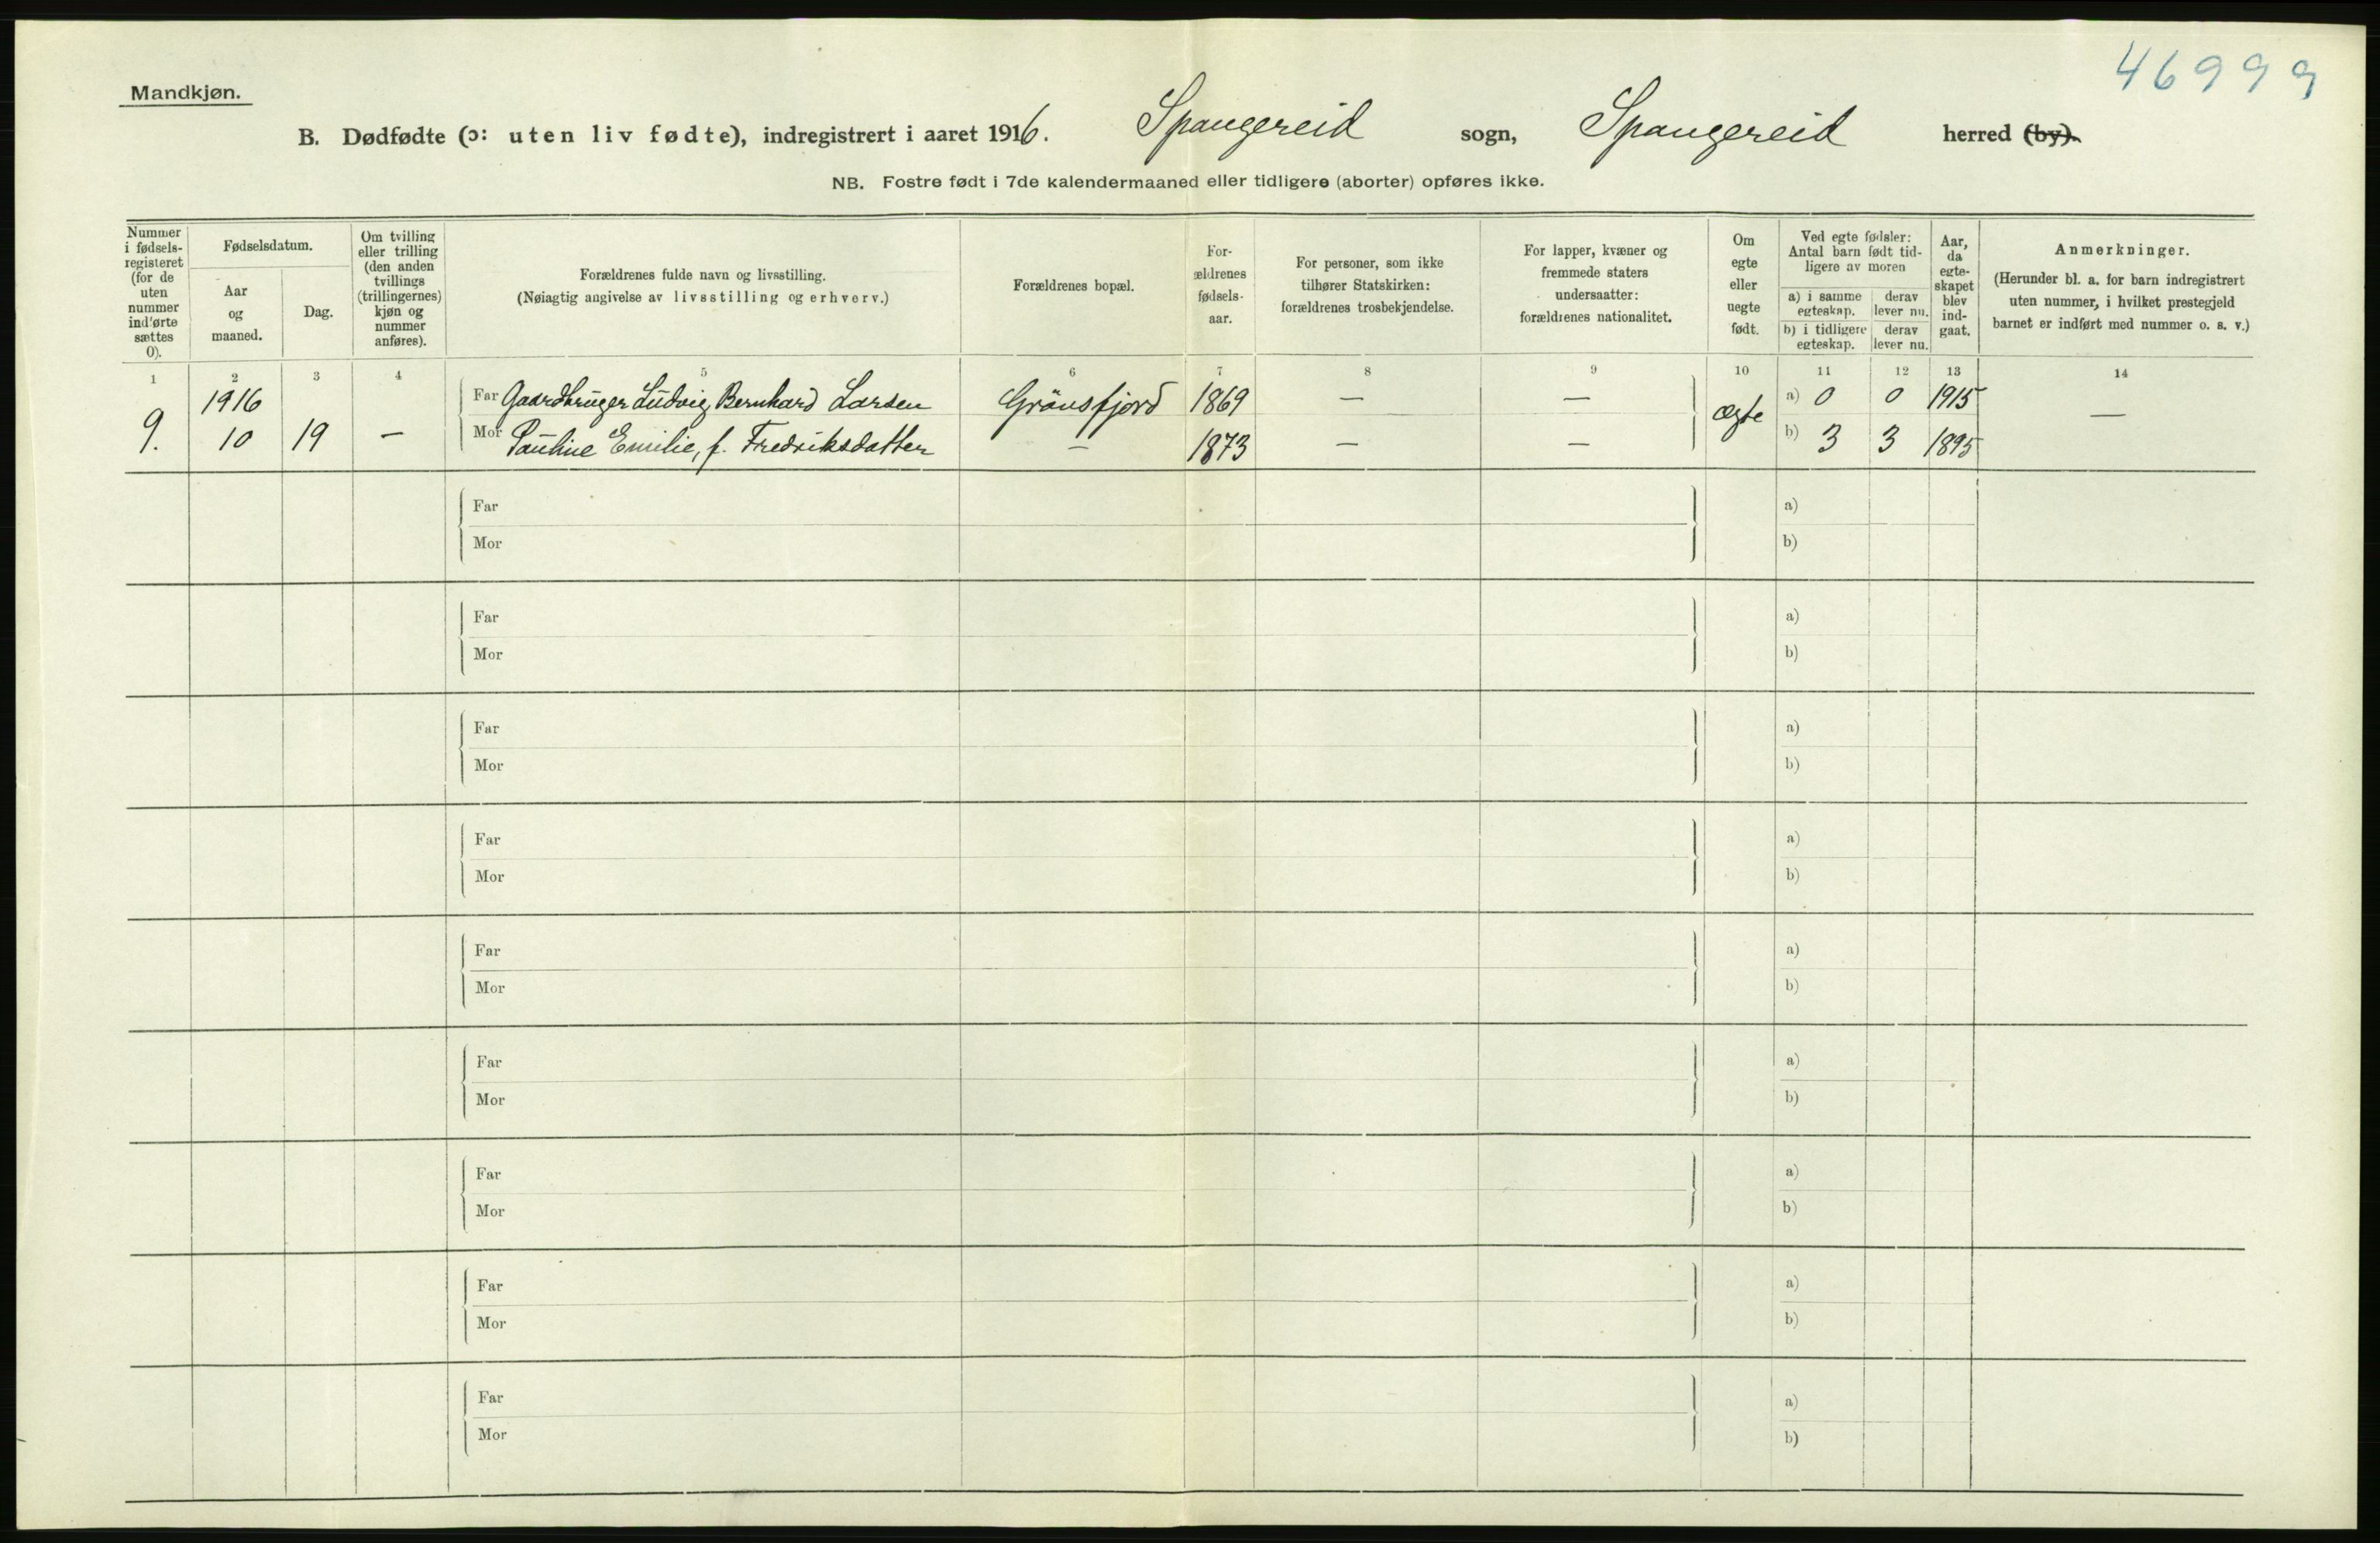 46999
Mandkjøn.
B. Dødfødte (ɔ: uten liv fødte), indregistrert i aaret 1916. Spangereid sogn, Spangereid herred (by).
NB. Fostre født i 7de kalendermaaned eller tidligere (aborter) opføres ikke.
Nummer
i fødsels-
registeret
(for de
uten
nummer
indførte
sættes
0).
Fødselsdatum.
Aar
og
maaned.
Dag.
Om tvilling
eller trilling
(den anden
tvillings
(trillingernes)
kjøn og
nummer
anføres).
Forældrenes fulde navn og livsstilling.
(Nøiagtig angivelse av livsstilling og erhverv.)
Forældrenes bopæl.
For-
ældrenes
fødsels-
aar.
For personer, som ikke
tilhører Statskirken:
forældrenes trosbekjendelse.
For lapper, kvæner og
fremmede staters
undersaatter:
forældrenes nationalitet.
Om
egte
eller
uegte
født.
Ved egte fødsler:
Antal barn født tid-
ligere av moren
a) i samme
egteskap.
derav
lever nu.
b) i tidligere
egteskap.
derav
lever nu.
Aar,
da
egte-
skapet
blev
ind-
gaat.
Anmerkninger.
(Herunder bl. a. for barn indregistrert
uten nummer, i hvilket prestegjeld
barnet er indført med nummer o. s. v.)
1 2 3 4 5 6 7 8 9 10 11 12 13 14
1916 Far Gaardbruger Ludvig Bernhard Larsen Grönsfjord 1869 — — a) 0 0 1915
9. 10 19 — Mor Pauline Emilie, f. Fredriksdatter — 1873 — — Ægte b) 3 3 1895 —
Far a)
Mor b)
Far a)
Mor b)
Far a)
Mor b)
Far a)
Mor b)
Far a)
Mor b)
Far a)
Mor b)
Far a)
Mor b)
Far a)
Mor b)
Far a)
Mor b)